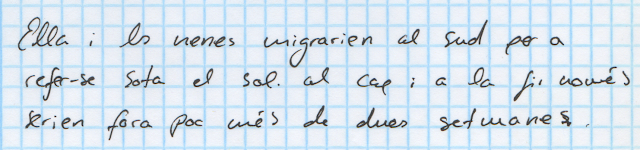 Ella i les nenes migrarien al sud per a
refer-se sota el sol. al cap i a la fi només
serien fora poc més de dues setmanes.